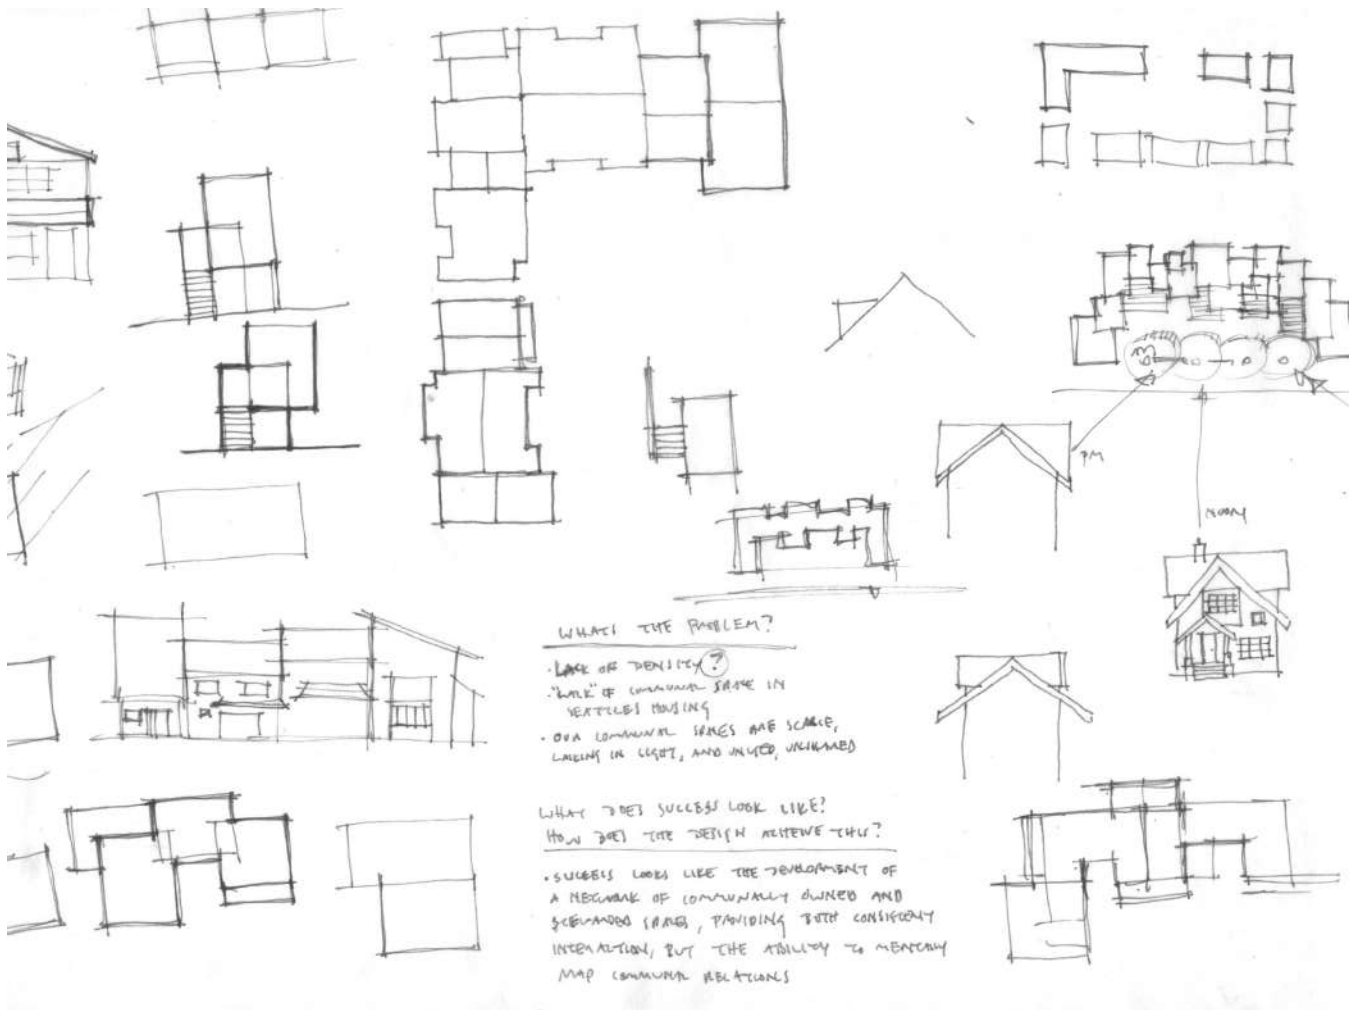 PM
NOON
WHATS THE PROBLEM?
· LACK OF DENSITY ?
· "LACK" OF COMMUNAL SPACE IN
SEATTLES HOUSING
· OUR COMMUNAL SPACES ARE SCARCE,
LACKING IN LIGHT, AND UNUSED, UNSHARED
WHAT DOES SUCCESS LOOK LIKE?
HOW DOES THE DESIGN ACHIEVE THIS?
· SUCCESS LOOKS LIKE THE DEVELOPMENT OF
A NETWORK OF COMMUNALLY OWNED AND
SPACES, PROVIDING BOTH CONSISTENT
INTERACTION, BUT THE ABILITY TO MENTALLY
MAP COMMUNAL RELATIONS